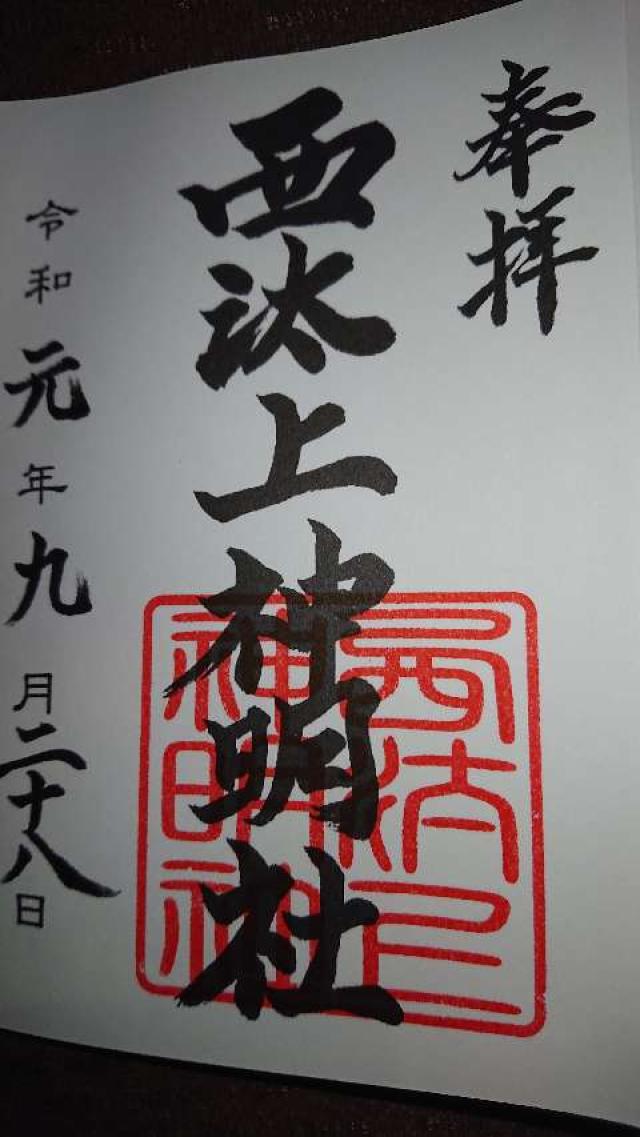 奉拝
西汰上神明社
令和元年九月二十八日
西汰上
神明社